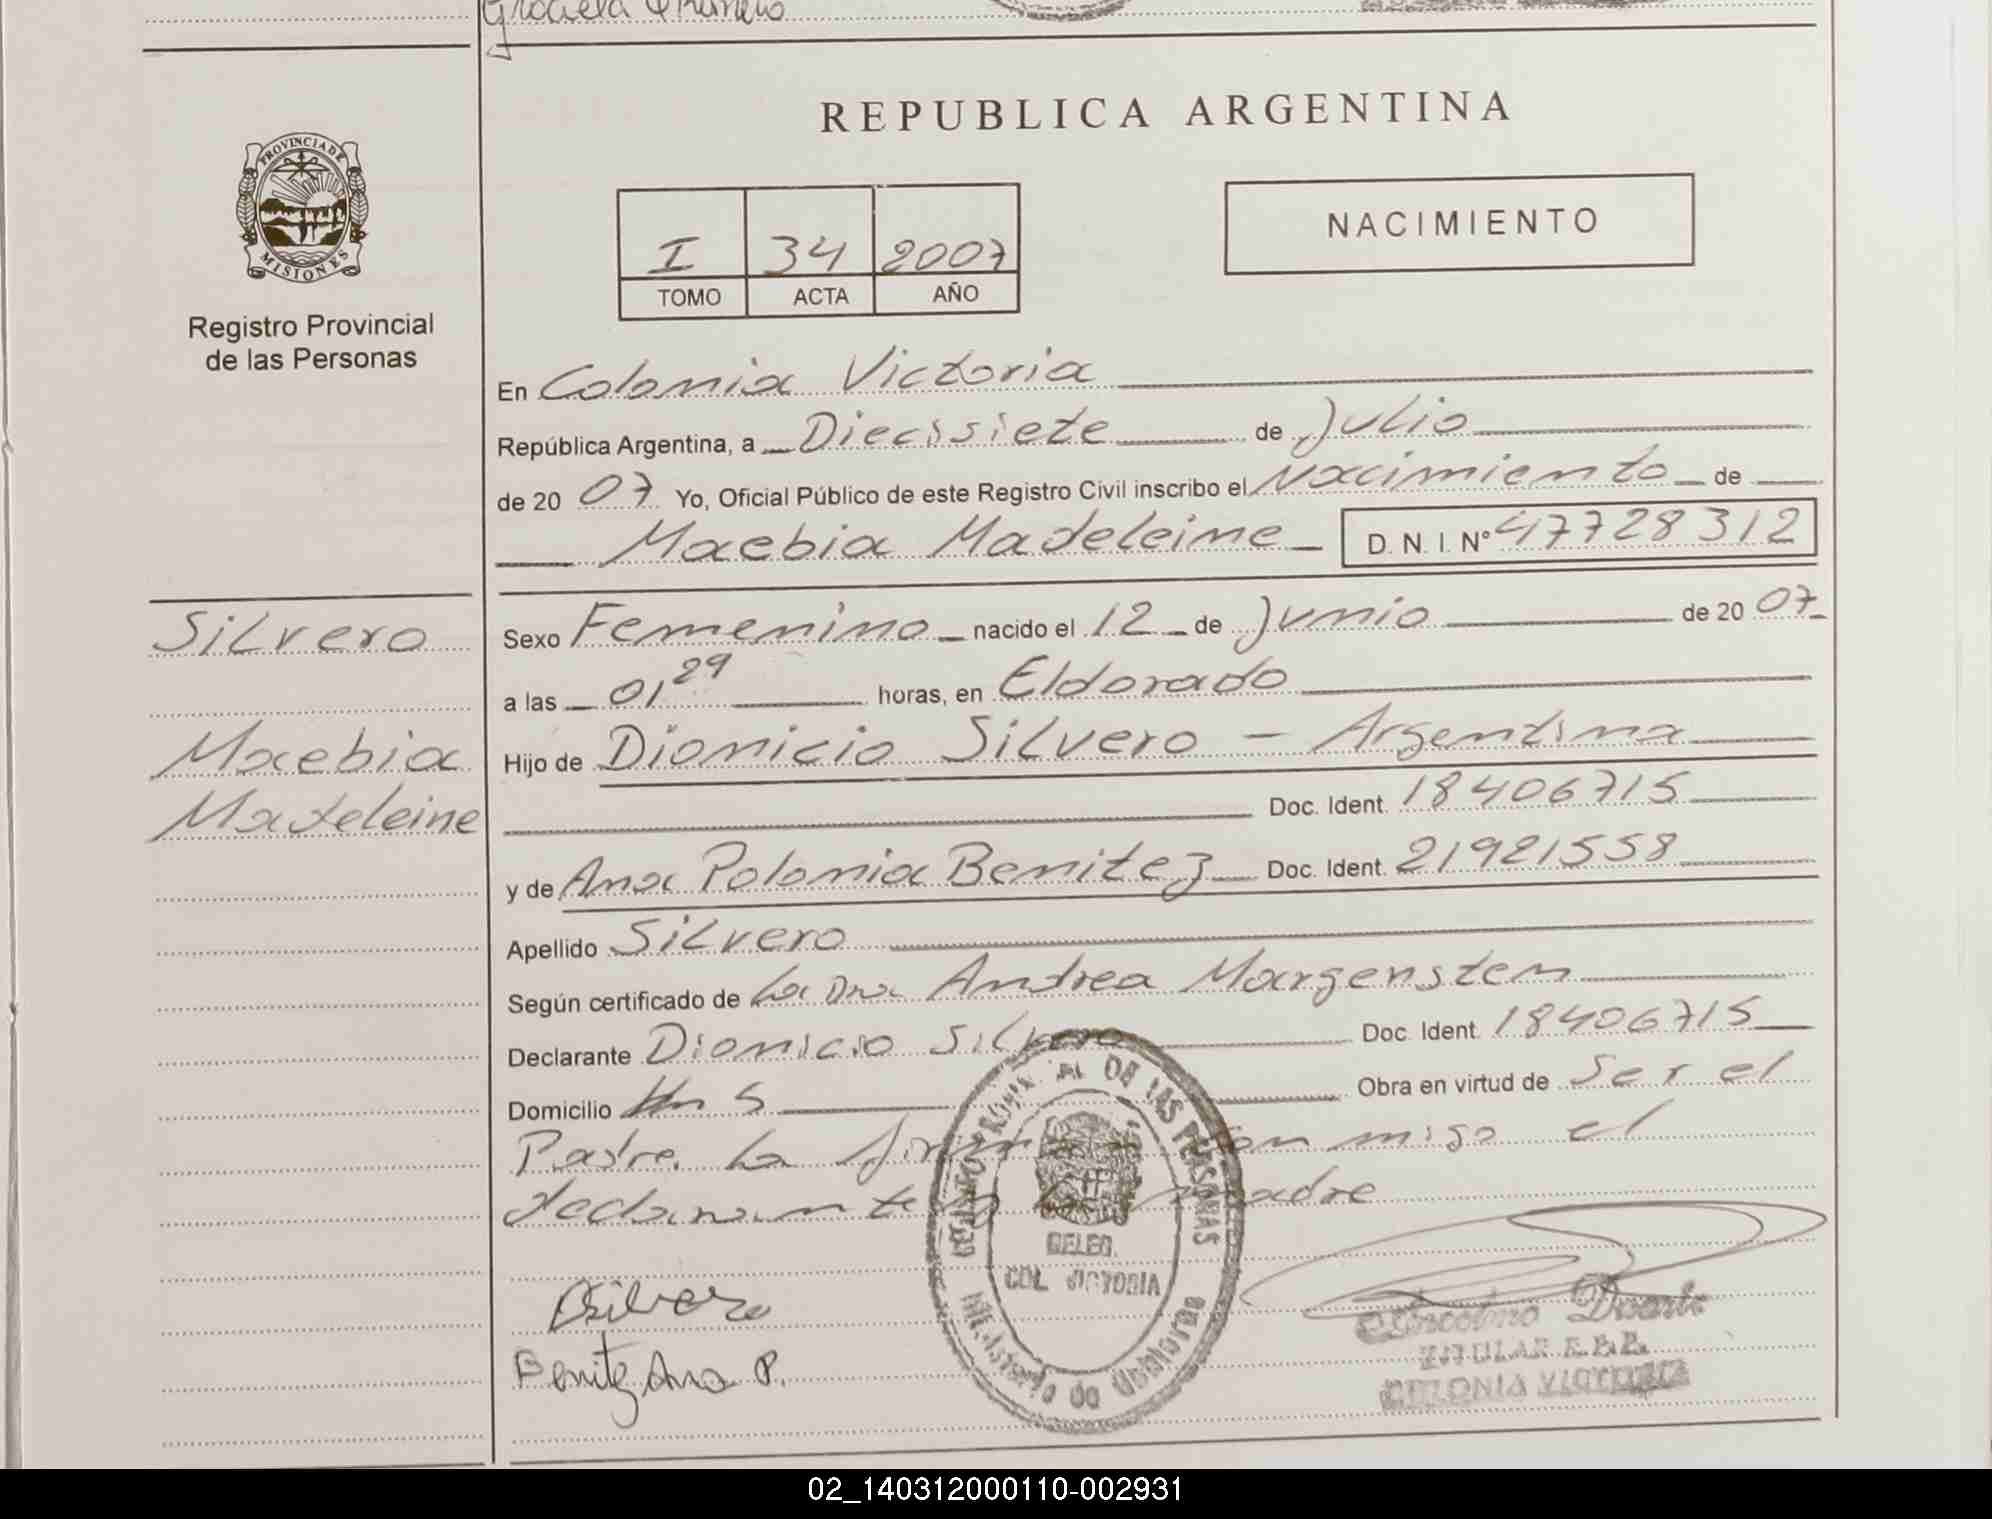 Graciela
REPUBLICA ARGENTINA
PROVINCIA DE
MISIONES
Registro Provincial
de las Personas
I 34 2007
TOMO ACTA AÑO
NACIMIENTO
En Colonia Victoria
República Argentina, a Diecisiete de Julio
de 20 07 Yo, Oficial Público de este Registro Civil inscribo el Nacimiento de
Maebia Madeleine D. N. I. Nº 47728312
Silvero
Maebia
Madeleine
Sexo Femenino nacido el 12 de Junio de 20 07
a las 01 29 horas, en Eldorado
Hijo de Dionicio Silvero - Argentina
Doc. Ident. 18406715
y de Ana Polonia Benitez Doc. Ident. 21921558
Apellido Silvero
Según certificado de La Dra Andrea Margenstern
Declarante Dionicio Silvero Doc. Ident. 18406715
Domicilio Km 5 Obra en virtud de Ser el
Padre. La firman conmigo el
declarante y la madre
REGISTRO PROVINCIAL DE LAS PERSONAS
DELEG.
COL. VICTORIA
Ministerio de Gobierno
DSilvero
Benitez Ana P.
Duarte
TITULAR
COLONIA VICTORIA
02_140312000110-002931